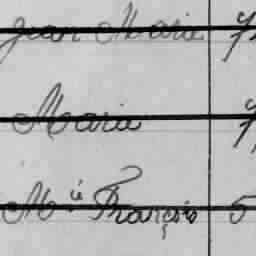 Jean Marie
Marie
Mie François 5